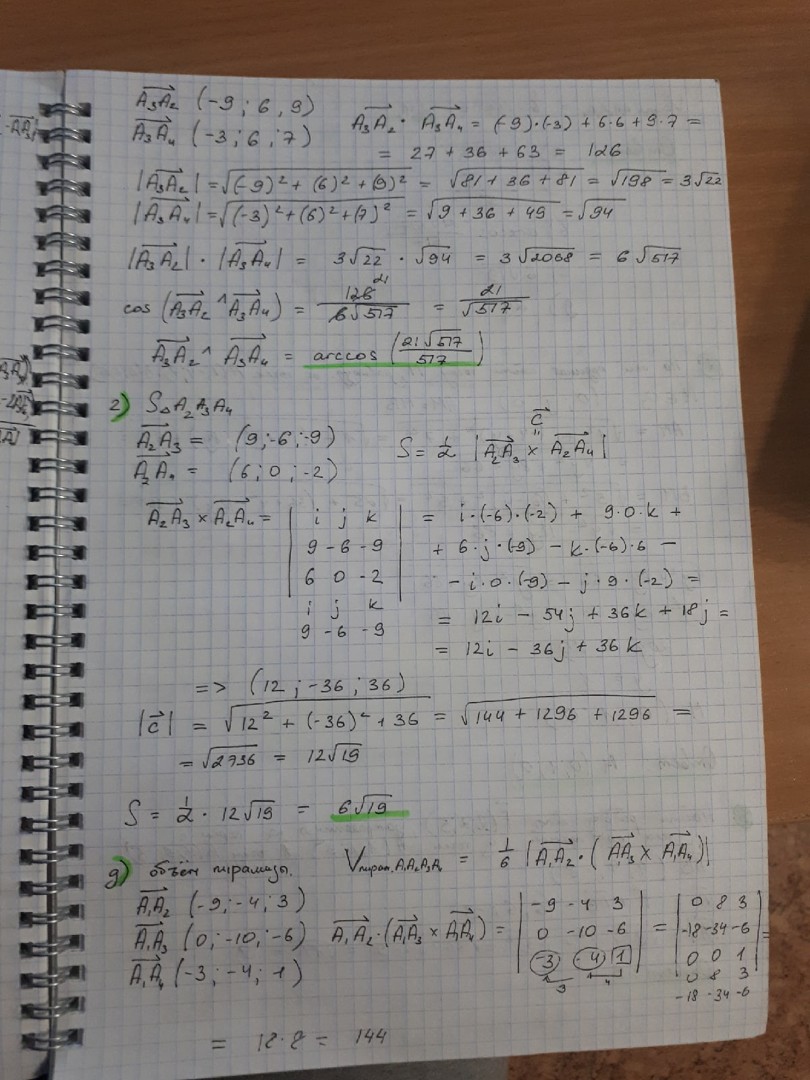 A₃A₂ (-9; 6, 9)
A₃A₄ (-3; 6; 7)
A₃A₂ · A₃A₄ = (-9)·(-3) + 6·6 + 9·7 =
= 27 + 36 + 63 = 126
|A₃A₂| = √((-9)² + (6)² + (9)²) = √(81 + 36 + 81) = √198 = 3√22
|A₃A₄| = √((-3)² + (6)² + (7)²) = √(9 + 36 + 49) = √94
|A₃A₂| · |A₃A₄| = 3√22 · √94 = 3√2068 = 6√517
cos (A₃A₂ ^ A₃A₄) = 126 21 / 6√517 = 21/√517
A₃A₂ ^ A₃A₄ = arccos (21√517/517)
г) S△A₂A₃A₄
A₂A₃ = (9; -6; -9)
A₂A₄ = (6; 0; -2)
c
S = 1/2 |A₂A₃ × A₂A₄|
A₂A₃ × A₂A₄ = | i j k | = i·(-6)·(-2) + 9·0·k +
9 -6 -9 + 6·j·(-9) - k·(-6)·6 -
6 0 -2 - i·0·(-9) - j·9·(-2) =
i j k = 12i - 54j + 36k + 18j =
9 -6 -9 = 12i - 36j + 36k
=> (12; -36; 36)
|c| = √(12² + (-36)² + 36) = √(144 + 1296 + 1296) =
= √2736 = 12√19
S = 1/2 · 12√19 = 6√19
д) объём пирамиды. Vпирам.A₁A₂A₃A₄ = 1/6 |A₁A₂ · (A₁A₃ × A₁A₄)|
A₁A₂ (-9; -4; 3)
A₁A₃ (0; -10; -6)
A₁A₄ (-3; -4; 1)
A₁A₂ · (A₁A₃ × A₁A₄) =
-9 -4 3
0 -10 -6
-3 -4 1
3 4
=
0 8 3
-18 -34 -6
0 0 1
0 8 3
-18 -34 -6
=
= 18·8 = 144